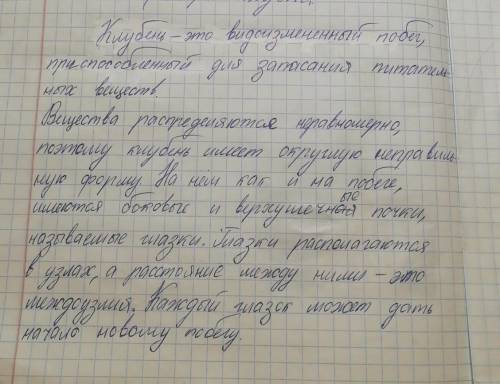 Клубень - это видоизмененный побег,
приспособленный для запасания питатель-
ных веществ.
Вещества распределяются неравномерно,
поэтому клубень имеет округлую неправиль-
ную форму. На нем как и на побеге,
имеются боковые и верхушечные почки,
называемые глазки. Глазки располагаются
в узлах, а расстояние между ними - это
междоузлия. Каждый глазок может дать
начало новому побегу.